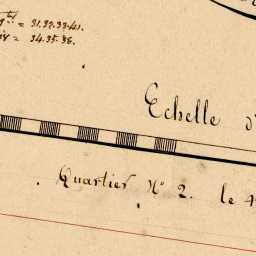 = 31.32.33.41.
= 34.35.36.
Echelle
Quartier N° 2. le 4